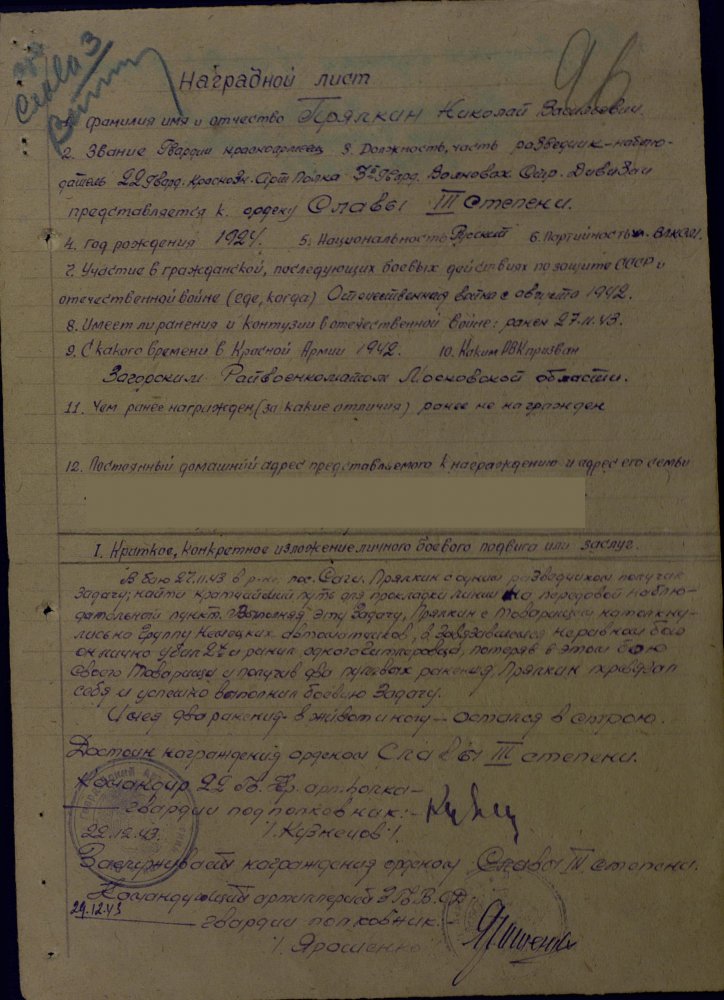 Слава 3
96
Наградной лист
1. Фамилия имя и отчество Прялкин Николай Васильевич.
2. Звание Гвардии красноармеец 3. Должность, часть разведчик-наблю-
датель 22 Гвард. Краснозн. Арт Полка 3й Гвард. Волновах. Стр. Дивизии
представляется к ордену Славы III Степени.
4. Год рождения 1924. 5. Национальность Русский 6. Партийность чл. ВЛКСМ.
7. Участие в гражданской, последующих боевых действиях по защите СССР и
отечественной войне (где, когда) Отечественная война с августа 1942.
8. Имеет ли ранения и контузии в отечественной войне: ранен 27.11.43.
9. С какого времени в Красной Армии 1942. 10. Каким РВК призван
Загорским Райвоенкоматом Московской области.
11. Чем ранее награжден (за какие отличия) ранее не награжден
12. Постоянный домашний адрес представляемого к награждению и адрес его семьи
I. Краткое, конкретное изложение личного боевого подвига или заслуг.
В бою 27.11.43 в р-не пос. Саги. Прялкин с одним разведчиком получил
задачу; найти кратчайший путь для прокладки линии на передовой наблю-
дательный пункт. Выполняя эту задачу, Прялкин с товарищем натолкну-
лись на группу немецких автоматчиков, в завязавшемся неравном бою
он лично убил 2х и ранил одного гитлеровца, потеряв в этом бою
своего товарища и получив два пулевых ранения. Прялкин перевязал
себя и успешно выполнил боевую задачу.
Имея два ранения - в живот и ногу - остался в строю.
Достоин награждения орденом Славы III степени.
Командир 22 Гв. Кр. артполка -
гвардии подполковник: -
22.12.43. /.Кузнецов./.
награждения орденом Славы III степени.
Командующий артиллерией 3 Г.В.С.Д.
29.12.43 гвардии полковник. -
/. Ярошенко